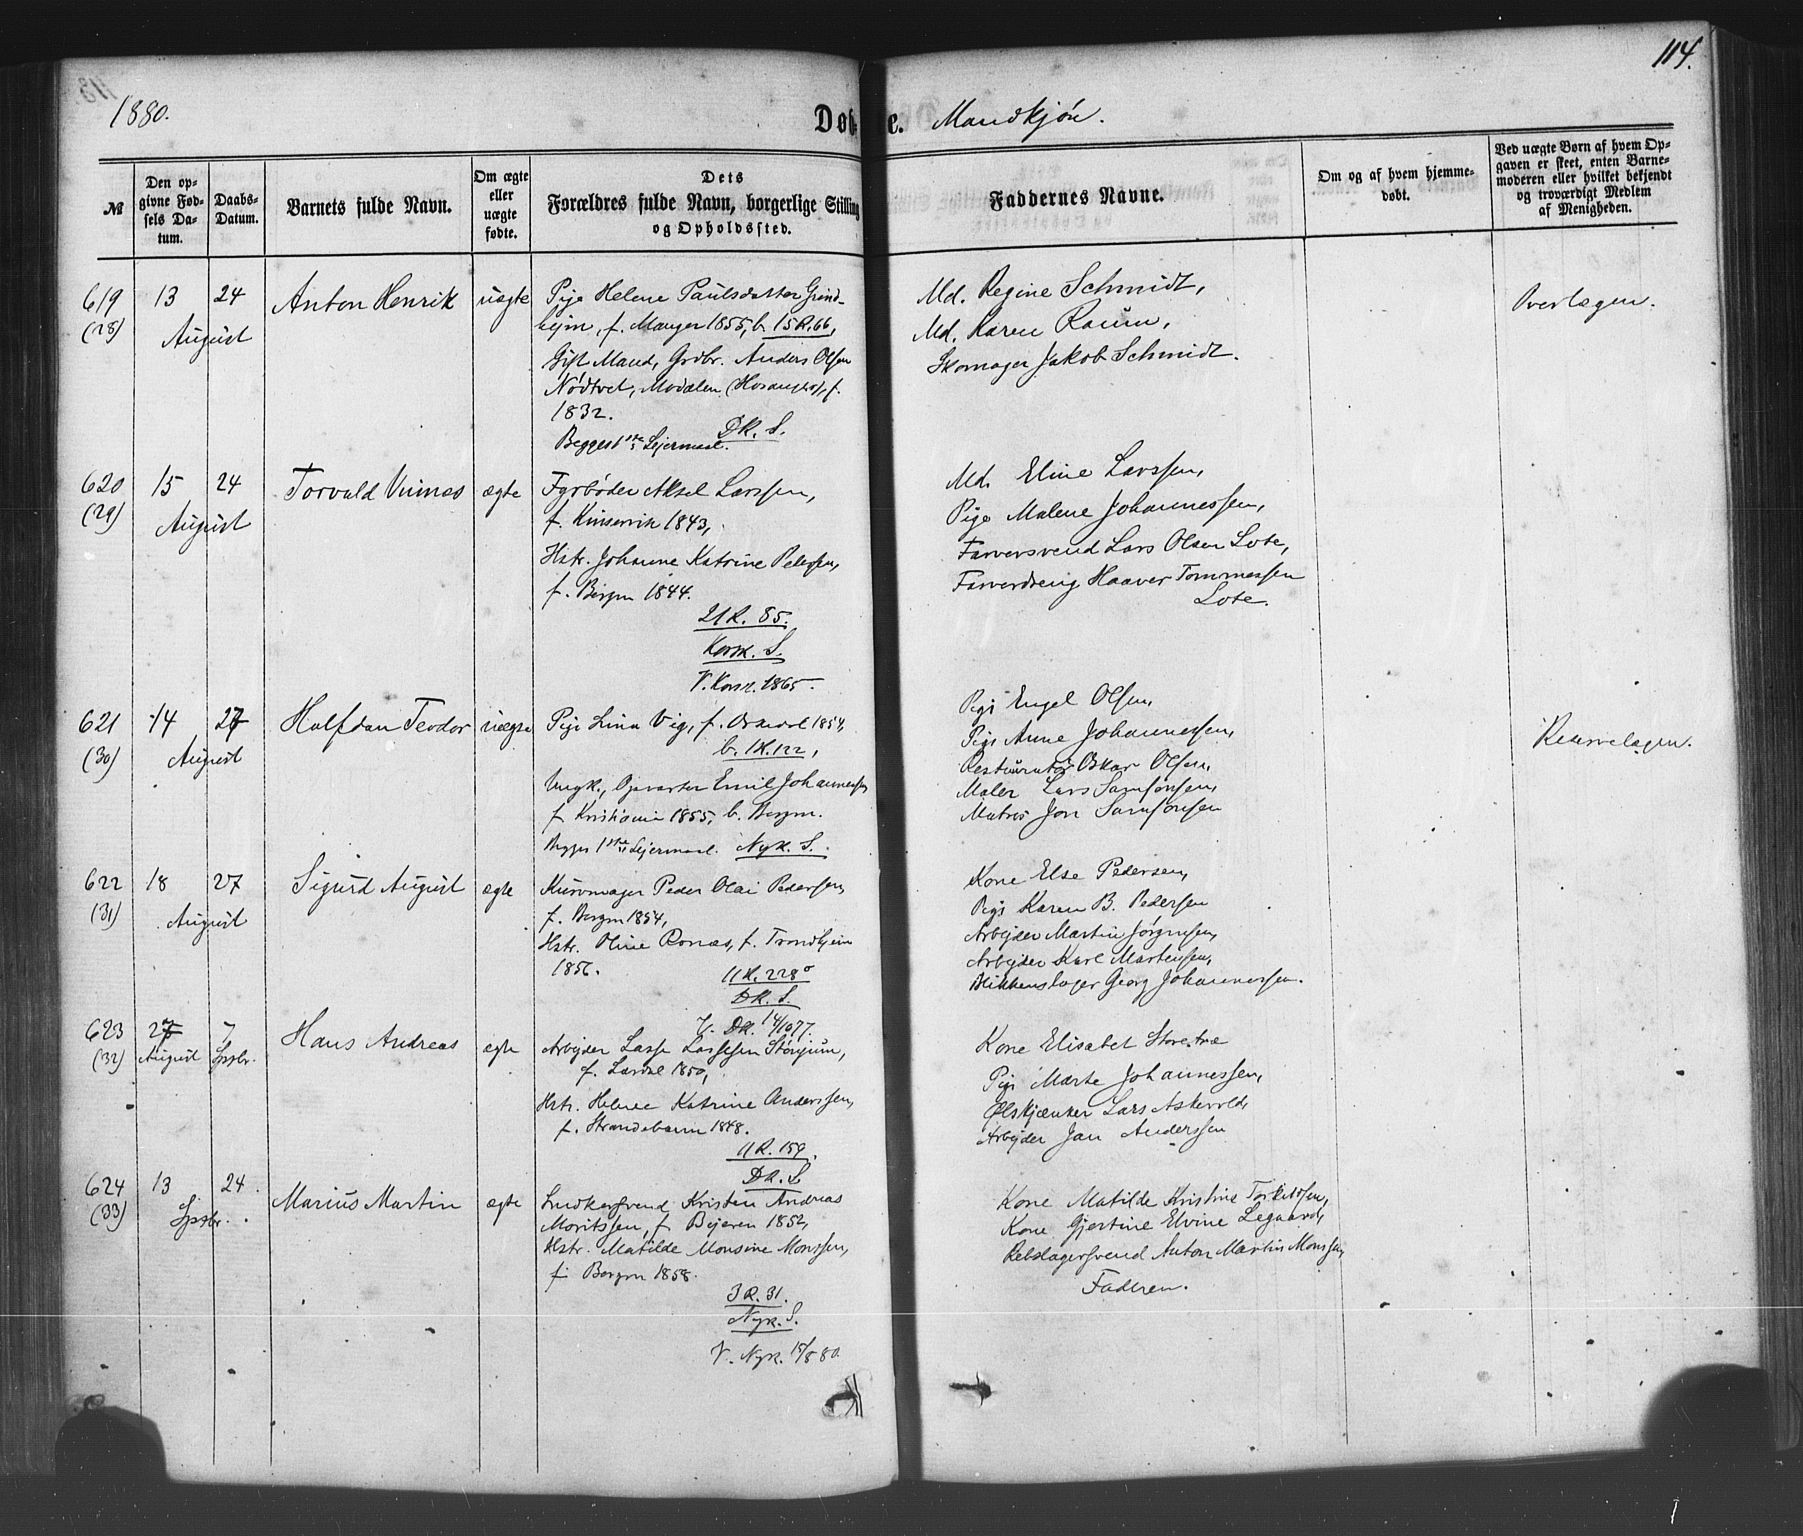 114.
1880.
Døbte. Mandkjøn.
№
Den op-
givne Fød-
sels Da-
tum.
Daabs-
Datum.
Barnets fulde Navn.
Om ægte
eller
uægte
fødte.
Dets
Forældres fulde Navn, borgerlige Stilling
og Opholdssted.
Faddernes Navne.
Om og af hvem hjemme-
døbt.
Ved uægte Børn af hvem Op-
gaven er skeet, enten Barne-
moderen eller hvilket bekjendt
og troværdigt Medlem
af Menigheden.
619
(28)
13 24
August
Anton Henrik
uægte
Pige Helene Paulsdatter Grind-
heim, f. Manger 1855, b. 15 R. 66,
Gift Mand, Grdbr. Anders Olsen
Nødtvet, Modalen (Hosanger), f.
1832.
DK. S.
Begges 1ste Lejermaal.
Md. Regine Schmidt,
Md. Karen Raum,
Skomager Jakob Schmidt.
Overlægen.
620
(29)
15 24
August
Torvald Vinnes
ægte
Fyrbøder Aksel Larssen,
f. Kinservik 1843,
Hstr. Johanne Katrine Petersen,
f. Bergen 1844.
21 R. 85.
Korsk. S.
V. Korsk. 1865.
Md. Eline Larssen,
Pige Malene Johannessen,
Farversvend Lars Olsen Lote,
Farverdreng Haaver Tommessen
Lote.
621
(30)
14 27
August
Halfdan Teodor
uægte
Pige Lina Vig, f. Askvol 1854,
b. 1 R. 122,
Ungk., Opvarter Emil Johannessen
f. Kristiania 1855, b. Bergen.
Begges 1ste Lejermaal. Nyk. S.
Pige Engel Olsen,
Pige Anne Johannessen,
Restauratør Oskar Olsen,
Maler Lars Samsonsen,
Matros Jon Samsonsen
Reservelægen.
622
(31)
18 27
August
Sigurd August
ægte
Kurvmager Peder Olai Pedersen,
f. Bergen 1854,
Hstr. Oline Ronæs, f. Trondhjem
1856.
11 R. 228 o
DK. S.
V. DK. 14/10 77.
Kone Else Pedersen,
Pige Karen B. Pedersen
Arbejder Martin Jørgensen,
Arbejder Karl Martensen,
Blikkenslager Georg Johannessen.
623
(32)
27 7
August Septbr.
Hans Andreas
ægte
Arbejder Lasse Lassesen Stønjum,
f. Lærdal 1850,
Hstr. Helene Katrine Anderssen,
f. Strandebarm 1848.
11 R. 159.
DK. S
Kone Elisabet Storetræ
Pige Marte Johannessen,
Ølskjænker Lars Askevold,
Arbejder Jan Anderssen
624
(33)
13 24.
Septbr.
Marius Martin
ægte
Snedkersvend Kristen Andreas
Moritssen, f. Bejeren 1852,
Hstr. Matilde Monsine Monssen,
f. Bergen 1858.
3 R. 31.
Nyk. S.
V. Nyk. 15/8 80.
Kone Matilde Kristine Torkildsen,
Kone Gjertine Elvine Legaard,
Rebslagersvend Anton Martin Monssen,
Faderen.